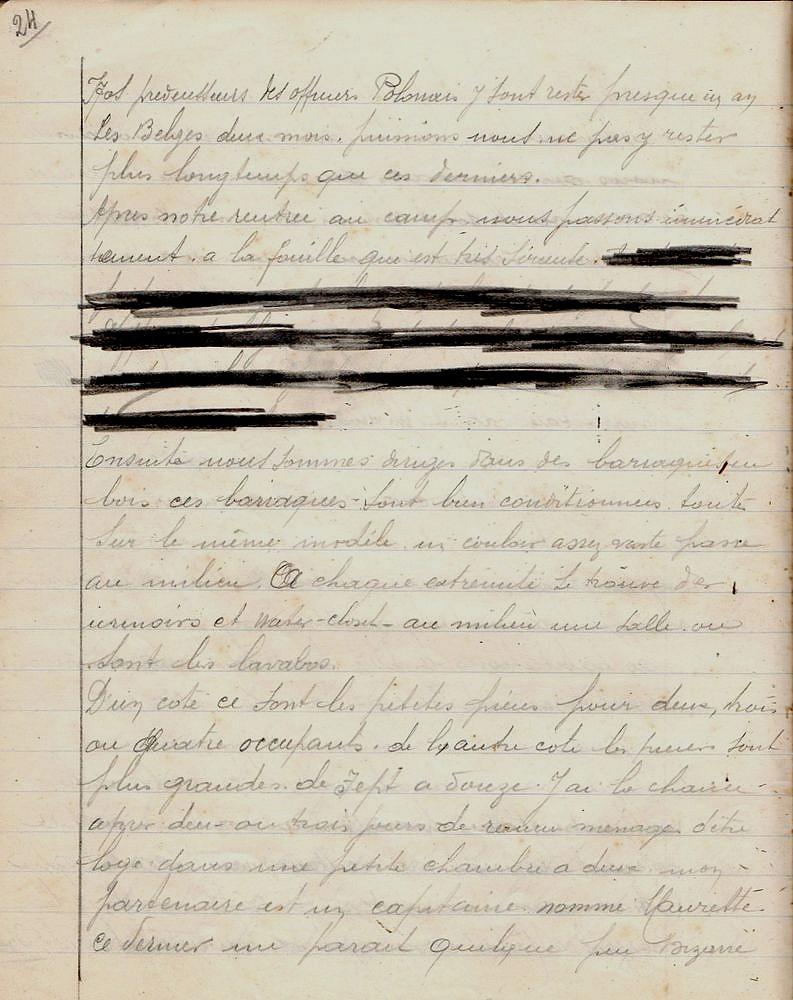 24/
Nos predecesseurs des officiers Polonais y sont rester presque un an
Les Belges deux mois. puissions nous ne pas y rester
plus longtemps que ces derniers.
Apres notre rentree au camp nous passons immediat
tement. a la fouille qui est tres
Ensuite nous sommes diriges dans des barraques en
bois ces barraques sont bien conditionnees toute
sur le même modèle un couloir assez vaste passe
au milieu. A chaque extremité se trouve des
urinoirs et water-closet au milieu une salle ou
sont les lavabos.
D'un coté ce sont les petites pieces pour deux, trois
ou Quatre occupants. de l'autre cote les pieces sont
plus grandes de Sept a douze. J'ai la chance
apres deux ou trois jours de remue menage d'etre
loge dans une petite chambre a deux mon
partenaire est un capitaine nomme Maurette
ce dernier me parait quelque peu Bizarre